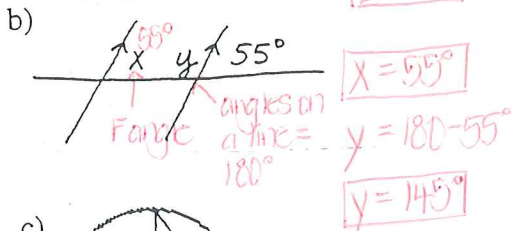 b)
55°
x y 55° x = 55°
F angle angles on
a line =
180°
y = 180-55°
y = 145°
c)